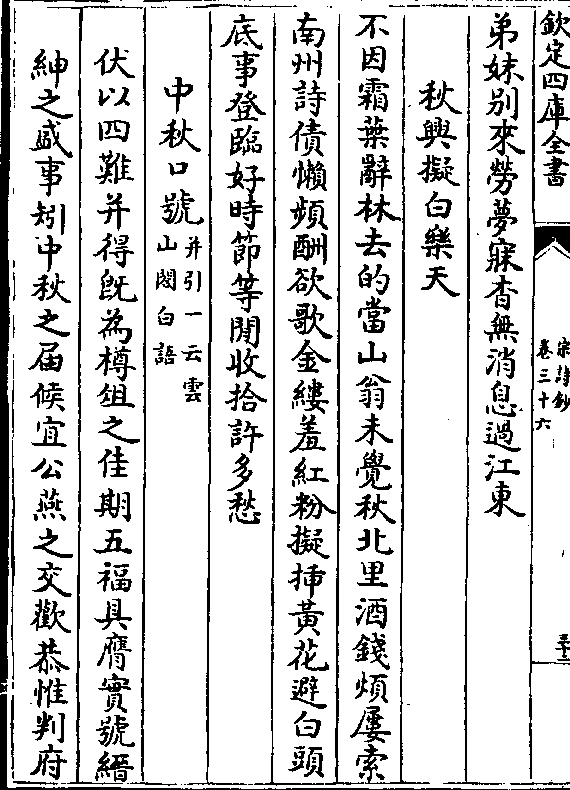 欽定四庫全書
宋詩鈔
卷三十六
弟妹别來勞夢寐杳無消息過江東
秋興擬白樂天
不因霜葉辭林去的當山翁未覺秋北里酒錢煩屢索
南州詩債懶頻酬欲歌金縷羞紅粉擬揷黃花避白頭
底事登臨好時節等閒收拾許多愁
中秋口號
并引一云雲
山閣白語
伏以四難并得旣為樽俎之佳期五福具膺實號縉
紳之盛事矧中秋之届候宜公燕之交歡恭惟判府